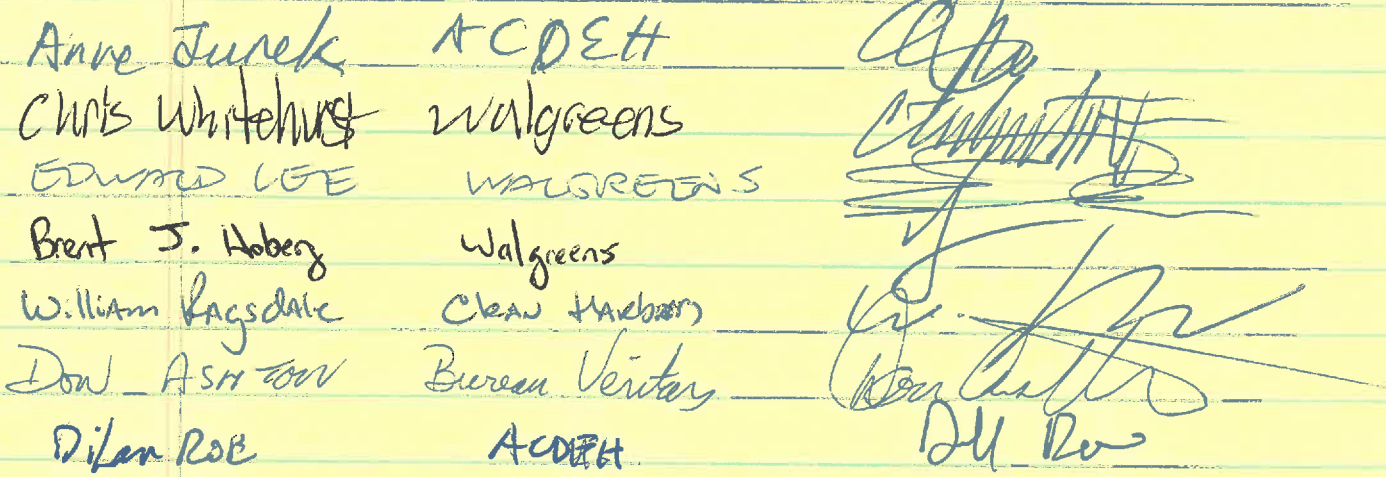 Anne Jurek ACDEH
Chris Whitehurst Walgreens
EDWARD LEE WALGREENS
Brent J. Hoberg Walgreens
William Ragsdale Clean Harbors
DON ASHTON Bureau Veritas
Dilan ROE ACDEH